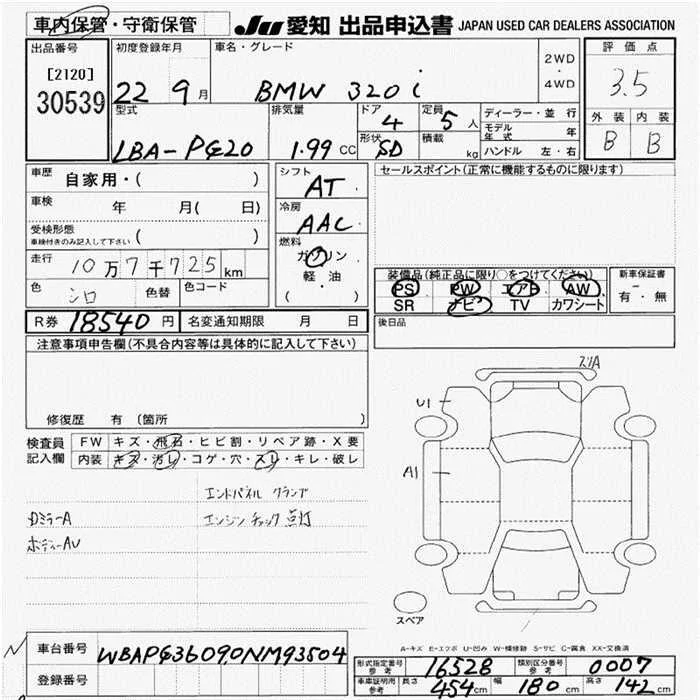 車内保管・守衛保管
JU 愛知 出品申込書 JAPAN USED CAR DEALERS ASSOCIATION
出品番号
[2120]
30539
初度登録年月
22 9月
車名・グレード
BMW 320i
2WD
・
4WD
評価点
3.5
外装 内装
B B
型式
LBA-PG20
排気量
1.99 CC
ドア
4
定員
5人
形状
SD
積載
kg
ディーラー・並行
モデル年式 年
ハンドル 左・右
車歴
自家用・( )
車検 年 月( 日)
受検形態
車検付きのみ記入して下さい ( )
走行 10万7千725km
色 シロ 色替 色コード
シフト
AT
冷房
AAC
燃料
ガソリン
軽・油
( )
セールスポイント(正常に機能するものに限ります)
装備品(純正品に限り○をつけてください)
PS PW エアB AW
SR ナビ TV カワシート
新車保証書
有・無
R券 18540円 名変通知期限 月 日
後日品
注意事項申告欄(不具合内容等は具体的に記入して下さい)
修復歴 有 〔箇所 〕
検査員
記入欄
FW キズ・飛石・ヒビ割・リペア跡・X要
内装 キズ・汚れ・コゲ・穴・スレ・キレ・破レ
エンドパネル クランプ
DミラーA エンジンチェック点灯
ボディーAU
スリA
U1
A1
スペア
A-キズ E-エクボ U-凹み W-補修跡 S-サビ C-腐食 XX-交換済
車台番号 WBAPG36090NM93504
登録番号
形式指定番号 参考 16528 類別区分番号 参考 0007
車庫証明用 参考 長さ 454cm 幅 180cm 高さ 142cm